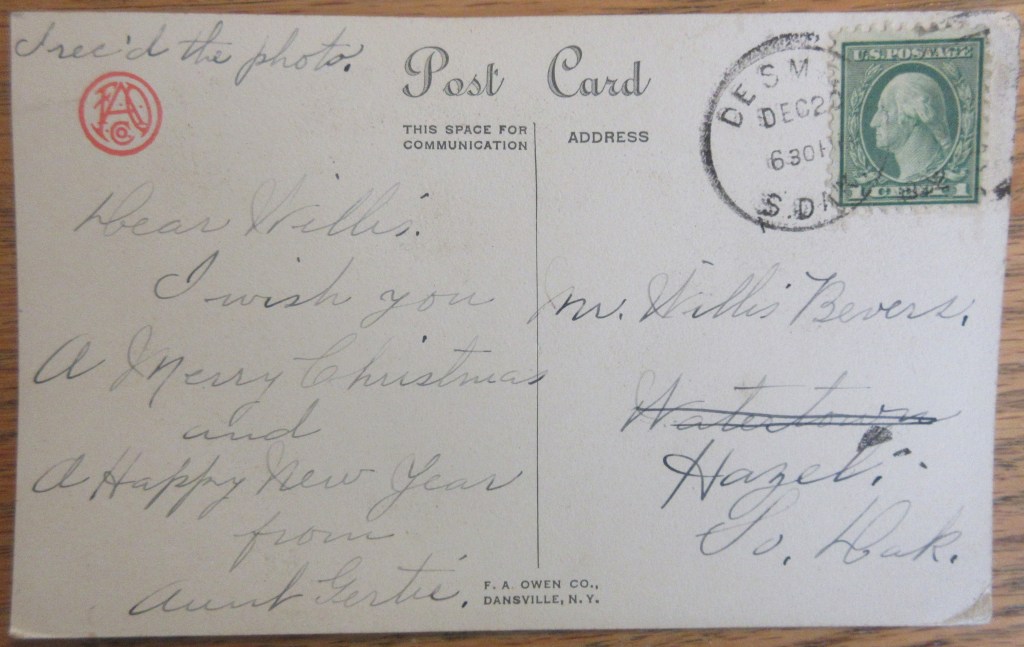 I rec'd the photo.
Post Card
THIS SPACE FOR
COMMUNICATION
ADDRESS
DE SM
DEC 2
630 P
S. DAK
U.S. POSTAGE
1 CENT 1
Dear Willis.
I wish you
A Merry Christmas
and
A Happy New Year
from
Aunt Gertie.
Mr. Willis Bevers.
Watertown
Hazel.
So. Dak.
F. A. OWEN CO.,
DANSVILLE, N. Y.